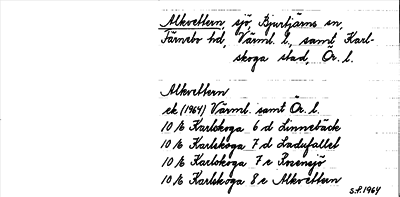 Alkvettern, sjö, Bjurtjärns sn,
Färnebo hd, Värml. l., samt Karl-
skoga stad, Ör. l.
Alkvettern
ek (1964) Värml. samt Ör. l.
10 E Karlskoga 6 d Linnebäck
10 E Karlskoga 7 d Ladufallet
10 E Karlskoga 7 e Rosensjö
10 E Karlskoga 8 e Alkvettern
S.F. 1964